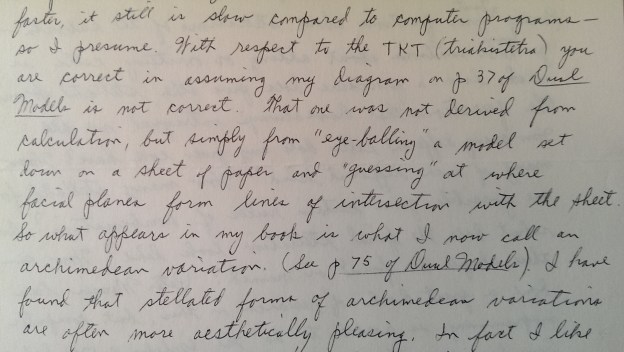 faster, it still is slow compared to computer programs—
so I presume. With respect to the TKT (triakistetra) you
are correct in assuming my diagram on p 37 of Dual
Models is not correct. That one was not derived from
calculation, but simply from "eye-balling" a model set
down on a sheet of paper and "guessing" at where
facial planes form lines of intersection with the sheet.
So what appears in my book is what I now call an
archimedean variation. (See p 75 of Dual Models). I have
found that stellated forms of archimedean variations
are often more aesthetically pleasing. In fact I like